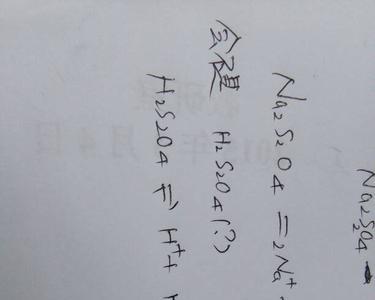 Na₂S₂O₄
Na₂S₂O₄ = 2Na⁺
会 H₂S₂O₄(?)
H₂S₂O₄ ⇌ H⁺ +